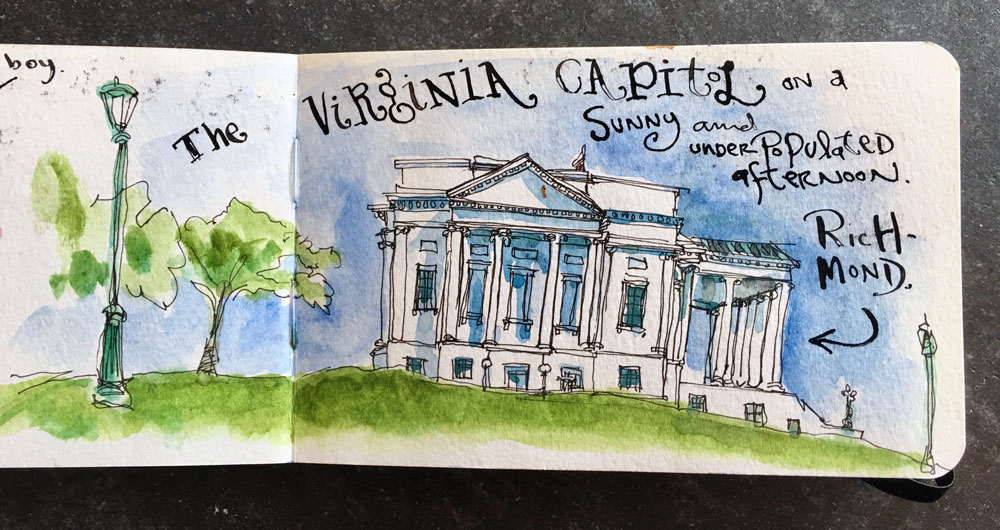 boy.
The VIRGINIA CAPItoL on a
Sunny and
underPoPulated
afternoon.
RicH-
MOND.